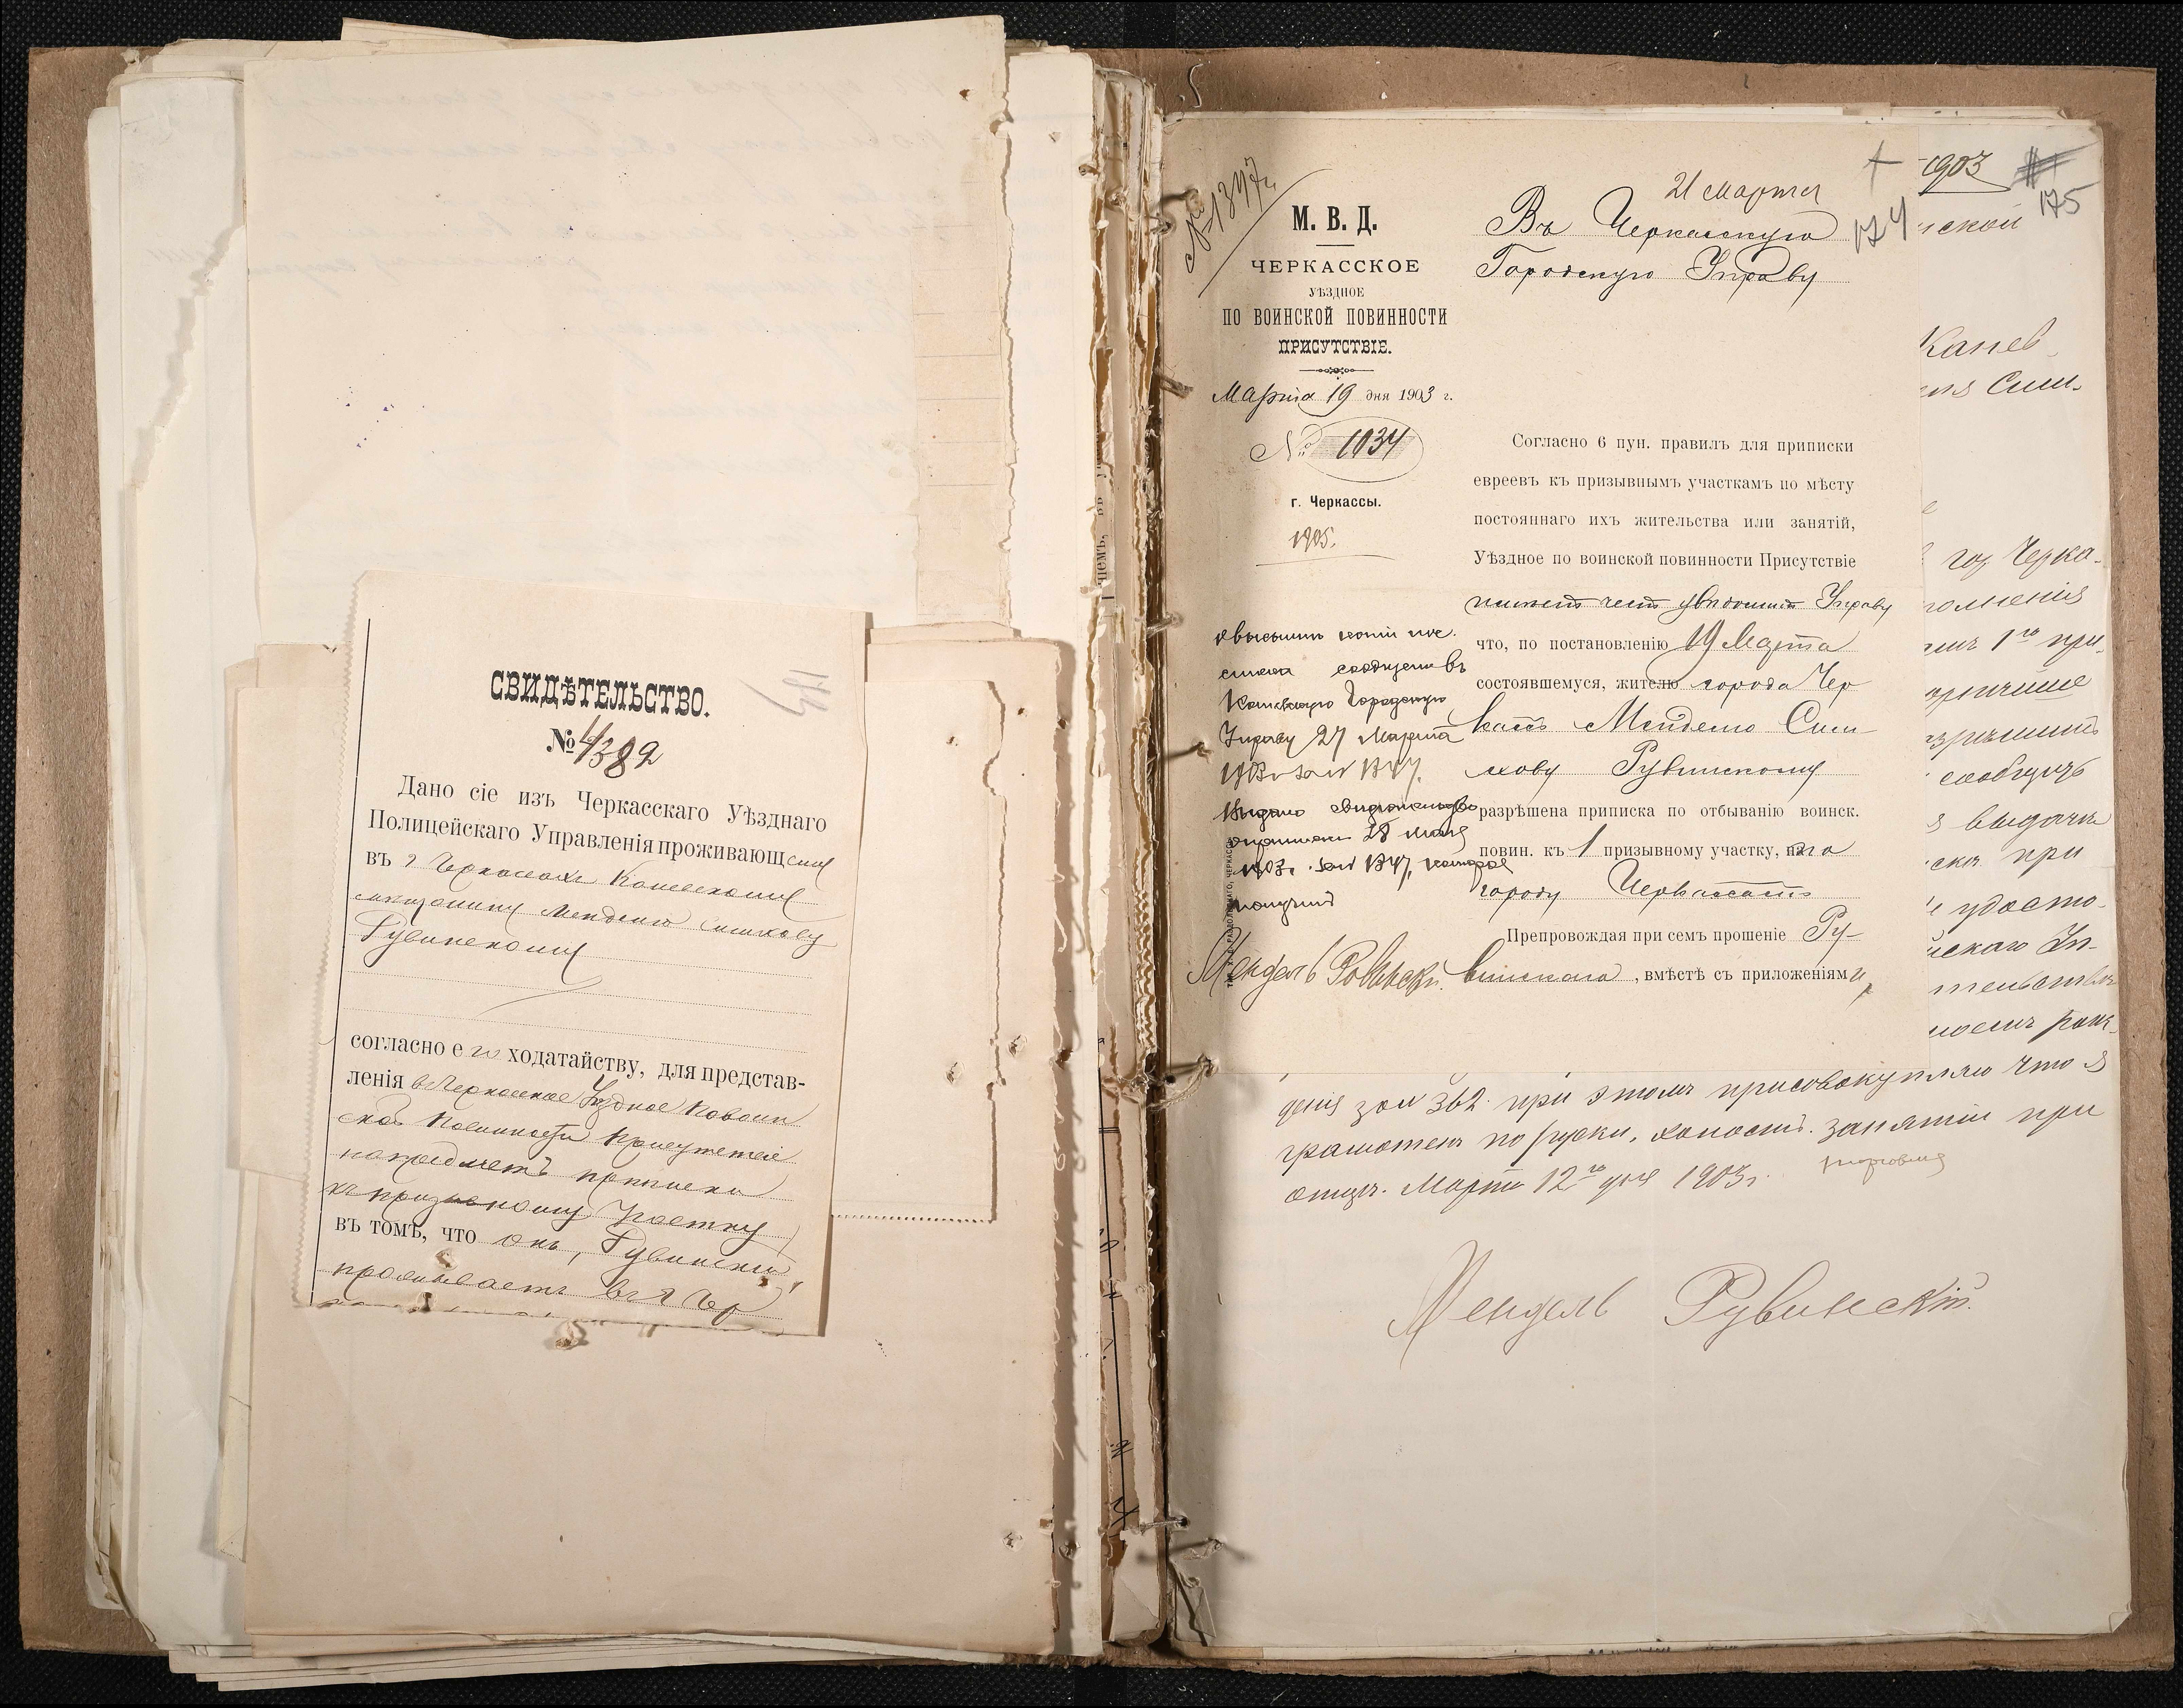 СВИДѢТЕЛЬСТВО.
№ 4382
Дано сіе изъ Черкасскаго Уѣзднаго
Полицейскаго Управленія проживающему
въ г Черкассахъ Каневскому
мѣщанину Менделю Симхову
Рувинскому
согласно его ходатайству, для представ-
ленія въ Черкасское Уѣздное по воин
ской повинности Присутствіе
на предметъ приписки
къ призывному участку
въ томъ, что онъ, Рувинскій
проживаетъ въ г Чер
№ 1347
М. В. Д.
ЧЕРКАССКОЕ
УѢЗДНОЕ
ПО ВОИНСКОЙ ПОВИННОСТИ
ПРИСУТСТВІЕ.
Марта 19 дня 1903 г.
№ 1034
г. Черкассы.
1905.
21 марта
174
Въ Черкасскую
Городскую Управу
Согласно 6 пун. правилъ для приписки
евреевъ къ призывнымъ участкамъ по мѣсту
постояннаго ихъ жительства или занятій,
Уѣздное по воинской повинности Присутствіе
имѣетъ честь увѣдомить Управу
что, по постановленію 19 Марта
состоявшемуся, жителю города Чер
кассъ Менделю Сим-
хову Рувинскому
разрѣшена приписка по отбыванію воинск.
повин. къ 1 призывному участку, по
городу Черкассамъ
Препровождая при семъ прошеніе Ру-
винскаго, вмѣстѣ съ приложеніями
о высылкѣ копіи
списка сообщено въ
Каневскую Городскую
Управу 27 Марта
1903 за № 1347.
Выдано свидѣтельство
о припискѣ 28
1903 за № 1347, которое
получилъ
Мендель Рувинскій
1903
175
ской
Канев
Сим-
гор Черка-
1го при-
сообщить
выдачи
при
удосто-
скаго Уп-
рож-
денія за № 362. при этомъ присовокупляю что я
грамотенъ по руски, холостъ. занятіи при
отцѣ. Марта 12го дня 1903 г.
торговля
Мендель Рувинскій.